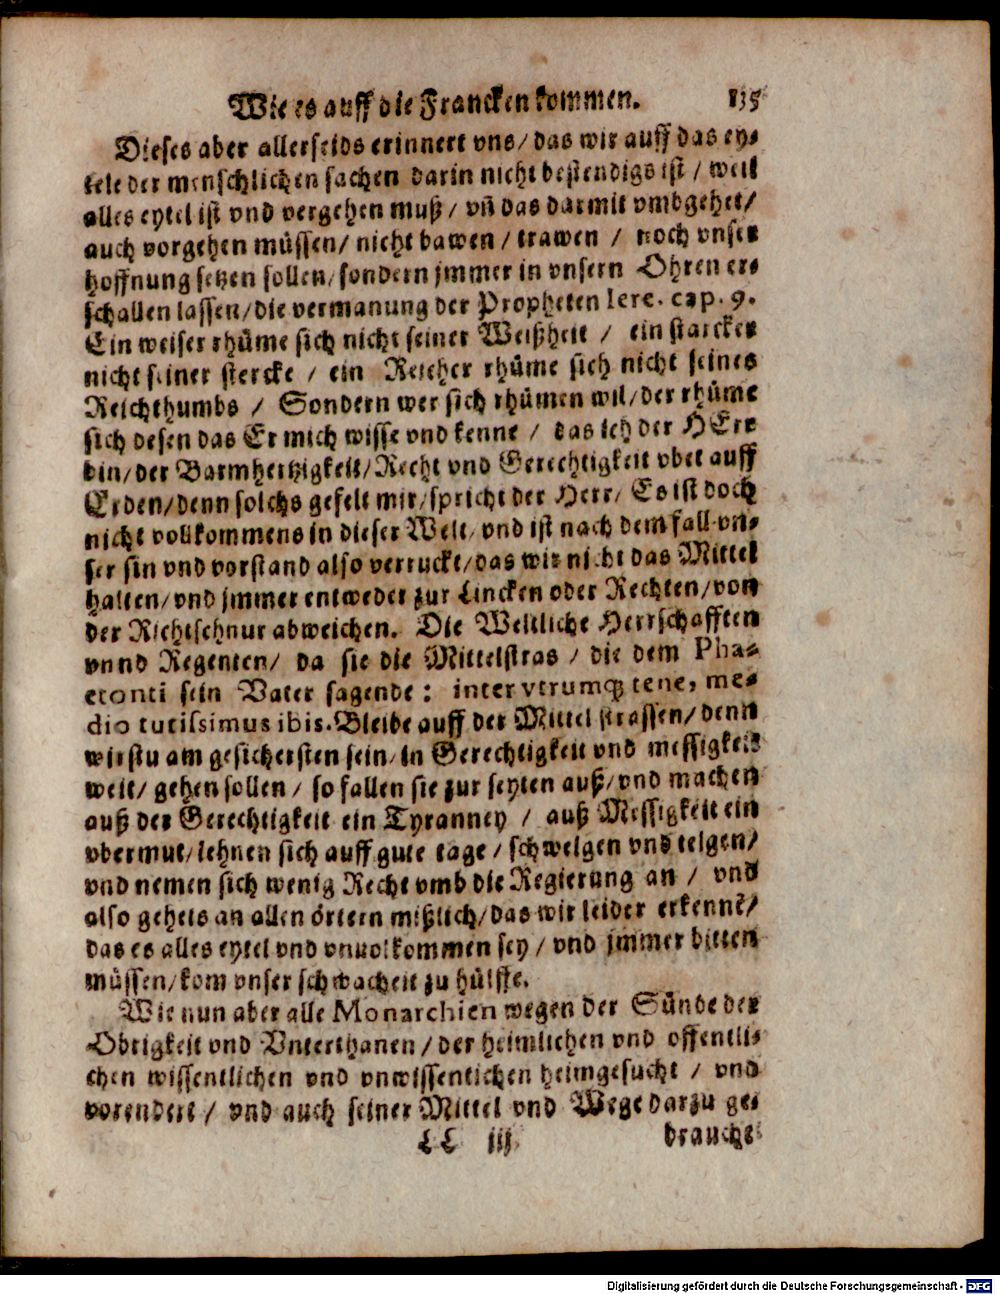 Wie es auff die Francken kommen. 135
Dieses aber allerseids erinnert vns/ das wir auff das ey-
tele der menschlichen sachen darin nicht bestendigs ist / weil
alles eytel ist vnd vergehen muß / vñ das darmit vmbgehet/
auch vorgehen müssen/ nicht bawen / trawen / noch vnser
hoffnung setzen sollen/ sondern jmmer in vnsern Ohren er-
schallen lassen/ die vermanung der Propheten Iere. cap. 9.
Ein weiser rhüme sich nicht seiner Weißheit / ein starcker
nicht seiner stercke / ein Reicher rhüme sich nicht seines
Reichthumbs / Sondern wer sich rhümen wil/ der rhüme
sich desen das Er mich wisse vnd kenne / das ich der HErr
bin/ der Barmhertzigkeit/ Recht vnd Gerechtigkeit vbet auff
Erden/ denn solchs gefelt mir/ spricht der Herr/ Es ist doch
nicht vollkommens in dieser Welt/ vnd ist nach dem fall vn-
ser sin vnd vorstand also verruckt/ das wir nicht das Mittel
halten/ vnd jmmer entweder zur Lincken oder Rechten/ von
der Richtschnur abweichen. Die Weltliche Herrschafften
vnnd Regenten/ da sie die Mittelstras / die dem Pha-
etonti sein Vater sagende : inter vtrumq; tene, me-
dio tutissimus ibis. Bleibe auff der Mittel strassen/ denn
wirstu am gesichersten sein/ in Gerechtigkeit vnd messigkeit
weit/ gehen sollen / so fallen sie zur seyten auß/ vnd machen
auß der Gerechtigkeit ein Tyranney / auß Messigkeit ein
vbermut/ lehnen sich auff gute tage / schwelgen vnd telgen/
vnd nemen sich wenig Recht vmb die Regierung an / vnd
also gehets an allen örtern mißlich/ das wir leider erkennē/
das es alles eytel vnd vnuolkommen sey / vnd jmmer bitten
müssen/ kom vnser schwacheit zu hülffe.
Wie nun aber alle Monarchien wegen der Sünde der
Obrigkeit vnd Vnterthanen / der heimlichen vnd offentli-
chen wissentlichen vnd vnwissentichen heimgesucht / vnd
vorendert / vnd auch seiner Mittel vnd Wege darzu ge-
LL iij brauche
Digitalisierung gefördert durch die Deutsche Forschungsgemeinschaft - DFG